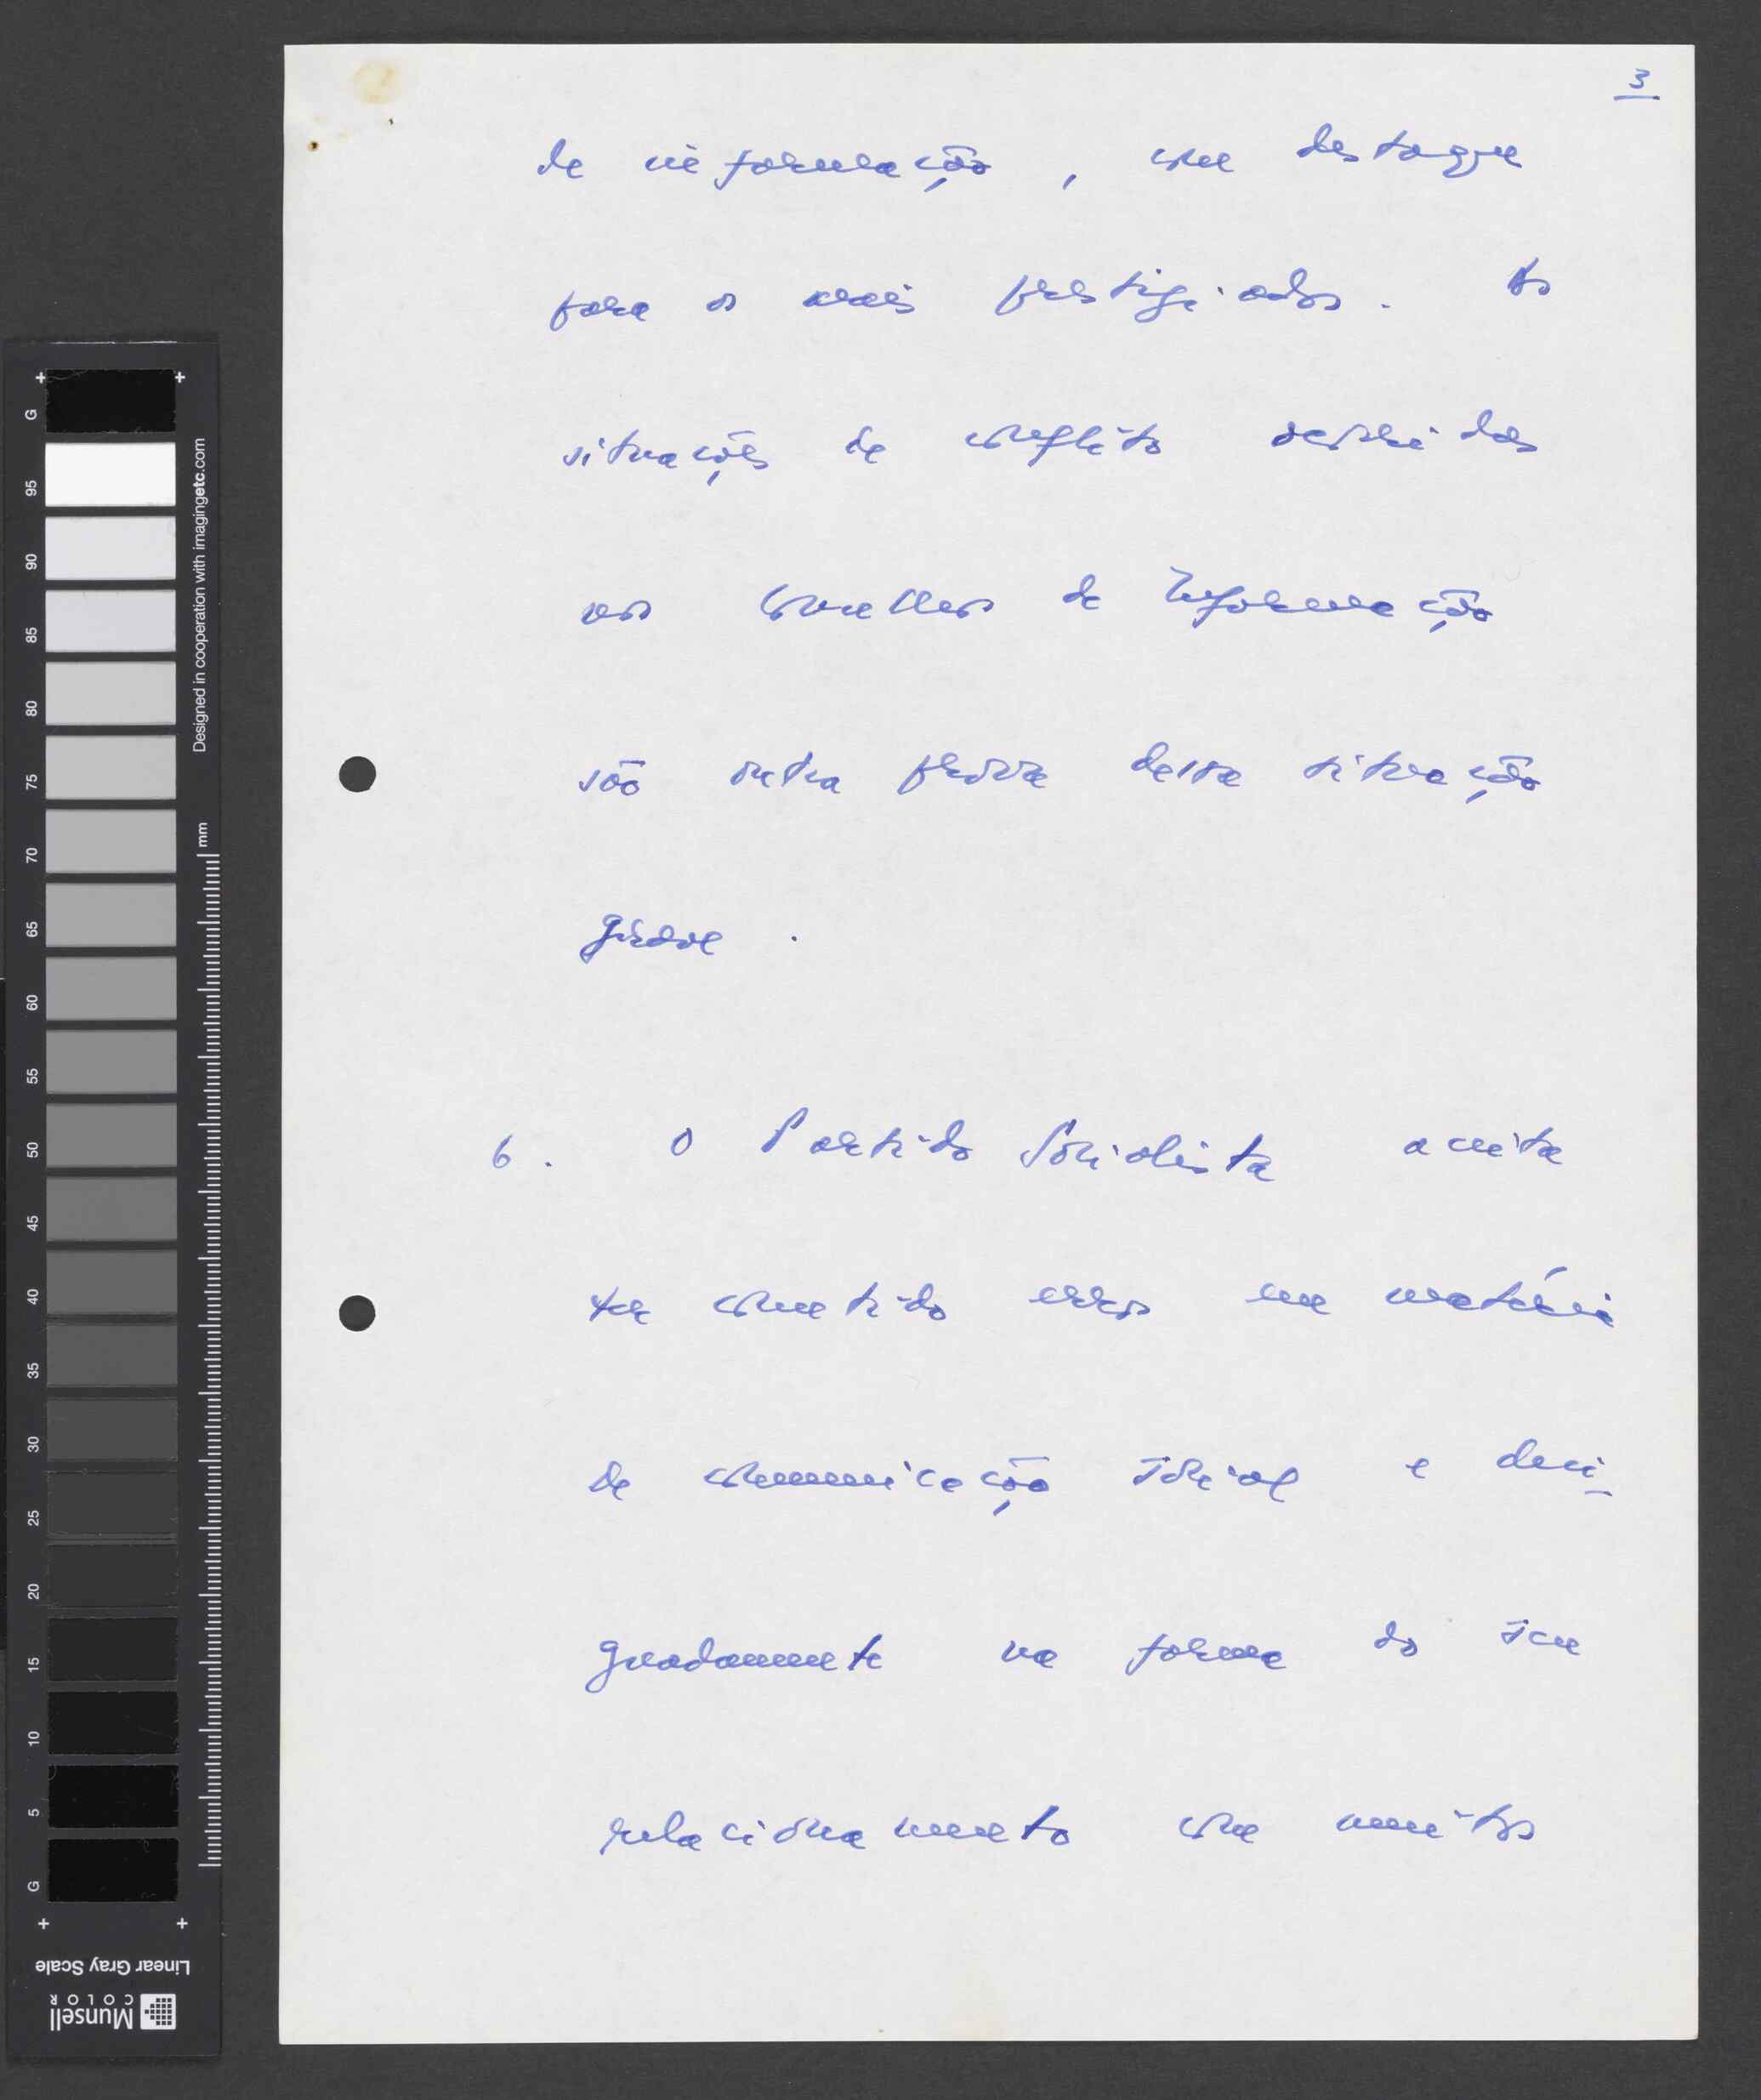 3
de informação, com destaque
para os mais prestigiados. As
situações de conflito ocorridas
nos Conselhos de Informação
são outra prova dessa situação
grave.
6. O Partido Socialista aceita
ter cometido erros em matéria
de comunicação social e desi-
gnadamente na forma do seu
relacionamento com muitos
+ +
G
95
90
85
80
75
70
65
60
55
50
45
40
35
30
25
20
15
10
5
G
+ +
Designed in cooperation with imagingetc.com
mm
Linear Gray Scale
Munsell
COLOR